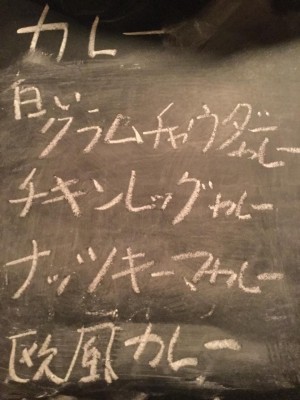 カレー
白いクラムチャウダーカレー
チキンレッグカレー
ナッツキーマカレー
欧風カレー